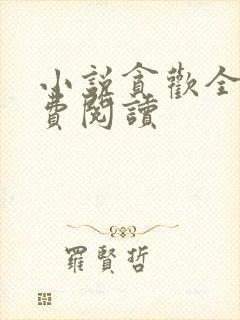 小説貪歡全
費閱讀
羅賢哲